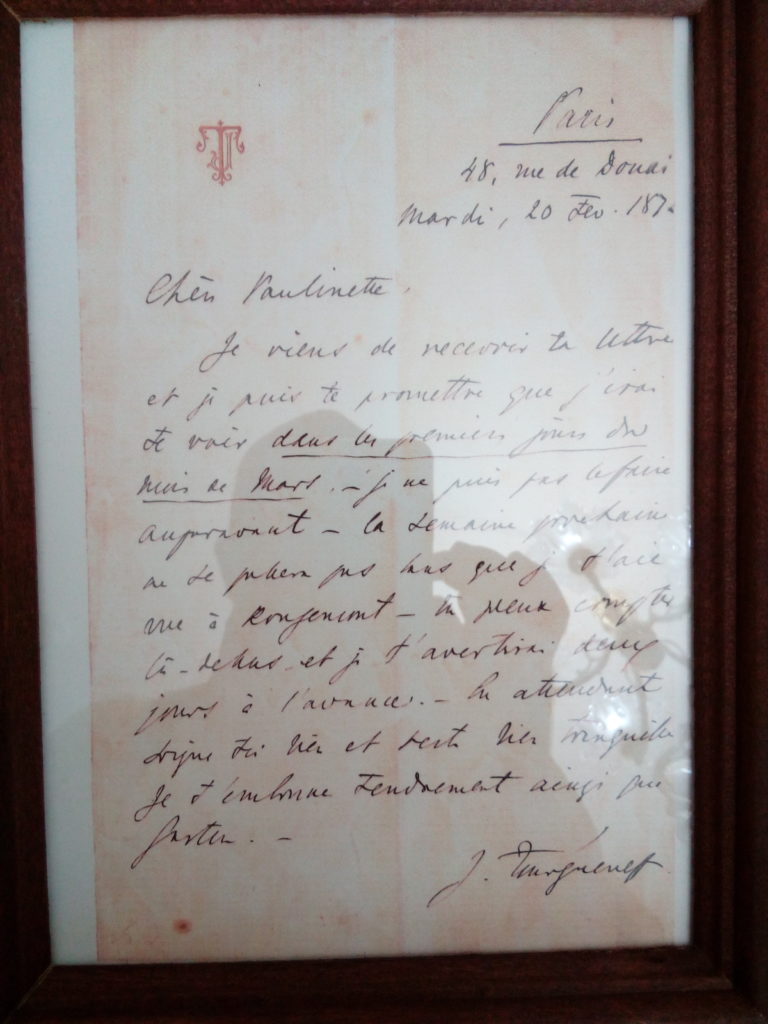 Paris
48, rue de Douai
Mardi, 20 Fev. 187
Chère Paulinette,
Je viens de recevoir ta lettre
et je puis te promettre que j'irai
te voir dans les premiers jours du
mois de Mars. – je ne puis pas le faire
auparavant – la semaine prochaine
ne se passera pas sans que je t'aie
vue à Rougemont – tu peux compter
là-dessus et je t'avertirai deux
jours à l'avance. – En attendant
soigne toi bien et reste bien tranquille
Je t'embrasse tendrement ainsi que
Gaston. –
J. Tourguéneff